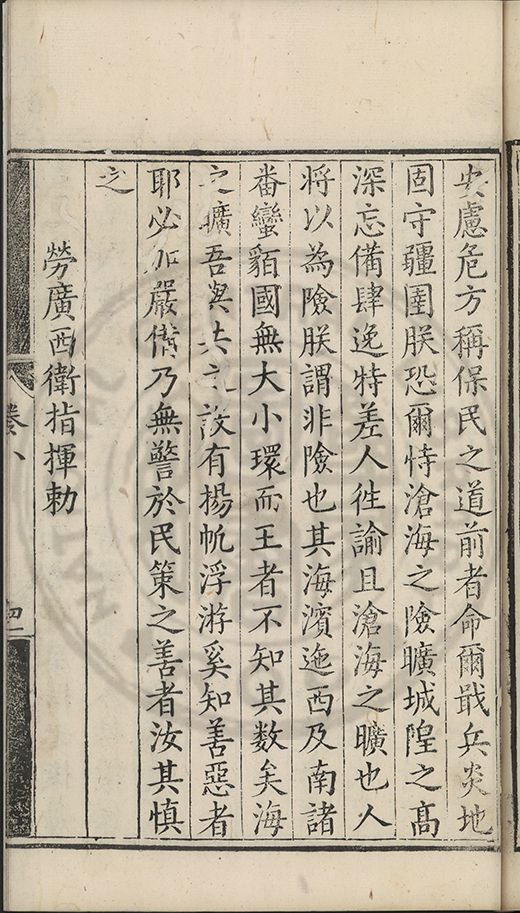 安慮危方稱保民之道前者命爾戢兵炎地
固守疆圉朕恐爾恃滄海之險曠城隍之高
深忘備肆逸特差人徃諭且滄海之曠也人
將以為險朕謂非險也其海濱迤西及南諸
番蠻貊國無大小環而王者不知其数矣海
之曠吾與共之設有揚帆浮游奚知善惡者
耶必加嚴備乃無警於民策之善者汝其慎
之
勞廣西衛指揮勅
卷八
四